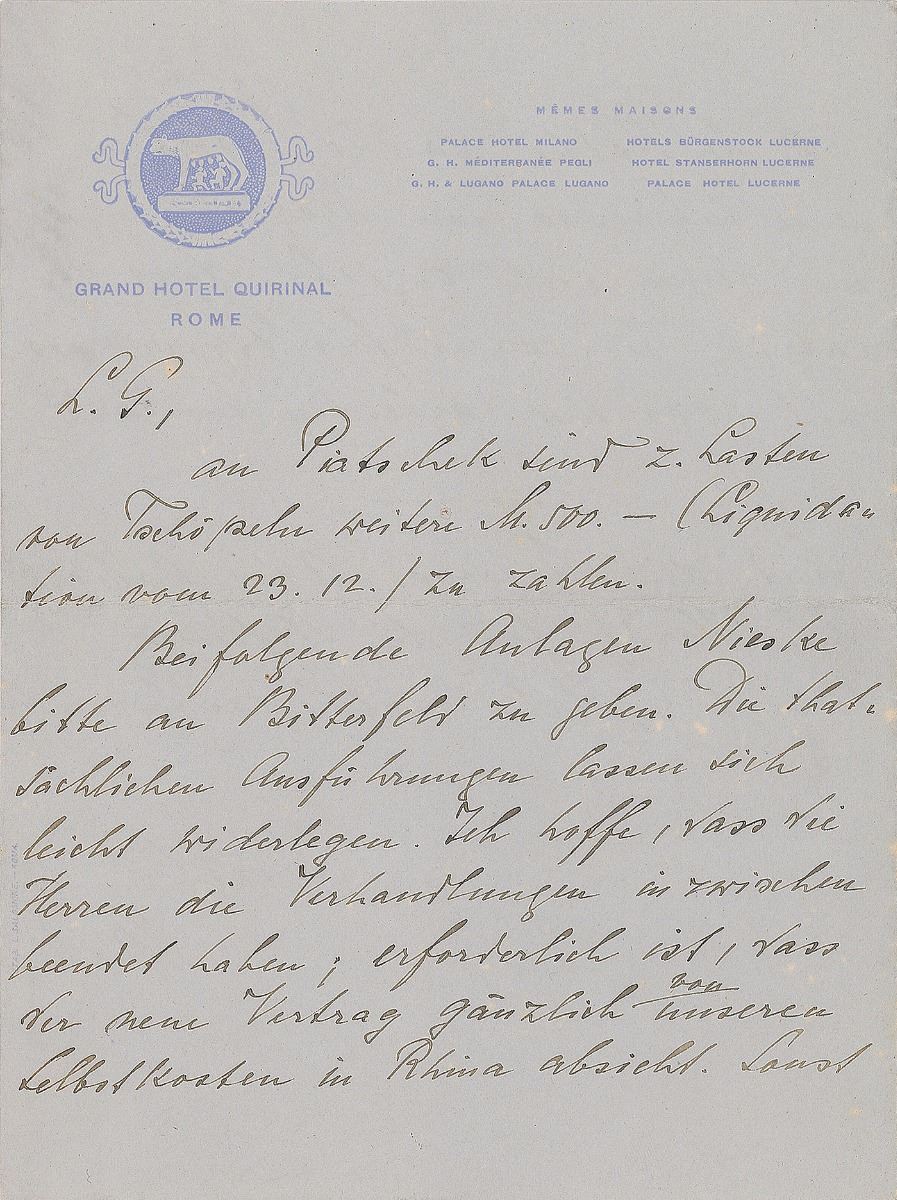 MÊMES MAISONS
PALACE HOTEL MILANO HOTELS BÜRGENSTOCK LUCERNE
G. H. MÉDITERRANÉE PEGLI HOTEL STANSERHORN LUCERNE
G. H. & LUGANO PALACE LUGANO PALACE HOTEL LUCERNE
GRAND HOTEL QUIRINAL
ROME
L. G.,
an Piatschek sind z. Lasten
von Tschöpeln weitere M. 500. — (Liquida-
tion vom 23. 12./ zu zahlen.
Beifolgende Anlagen Nieske
bitte an Bitterfeld zu geben. Die that-
sächlichen Ausführungen lassen sich
leicht widerlegen. Ich hoffe, dass die
Herren die Verhandlungen inzwischen
beendet haben; erforderlich ist, dass
der neue Vertrag gänzlich von unseren
Selbstkosten in Rhina absieht. Sonst